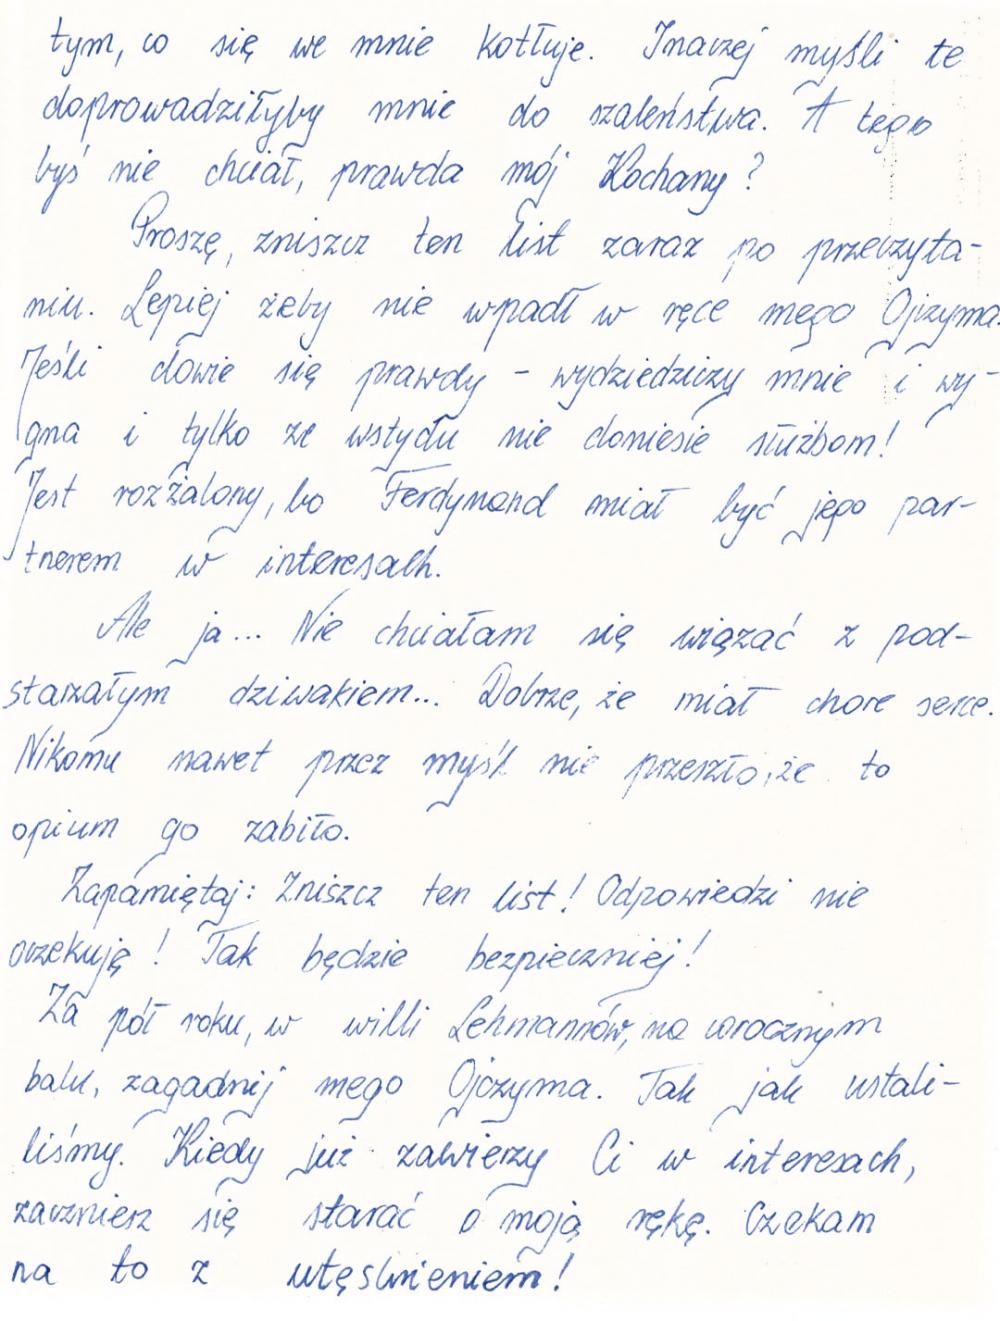 tym, co się we mnie kotłuje. Inaczej myśli te
doprowadziłyby mnie do szaleństwa. A tego
byś nie chciał, prawda mój Kochany?
Proszę, zniszcz ten list zaraz po przeczyta-
niu. Lepiej żeby nie wpadł w ręce mego Ojczyma.
Jeśli dowie się prawdy - wydziedziczy mnie i wy-
gna i tylko ze wstydu nie doniesie służbom!
Jest rozżalony, bo Ferdynand miał być jego par-
tnerem w interesach.
Ale ja... Nie chciałam się wiązać z pod-
starzałym dziwakiem... Dobrze, że miał chore serce.
Nikomu nawet przez myśl nie przeszło, że to
opium go zabiło.
Zapamiętaj: Zniszcz ten list! Odpowiedzi nie
oczekuję! Tak będzie bezpieczniej!
Za pół roku, w willi Lehmannów, na corocznym
balu, zagadnij mego Ojczyma. Tak jak ustali-
liśmy. Kiedy już zawierzy Ci w interesach,
zaczniesz się starać o moją rękę. Czekam
na to z utęsknieniem!